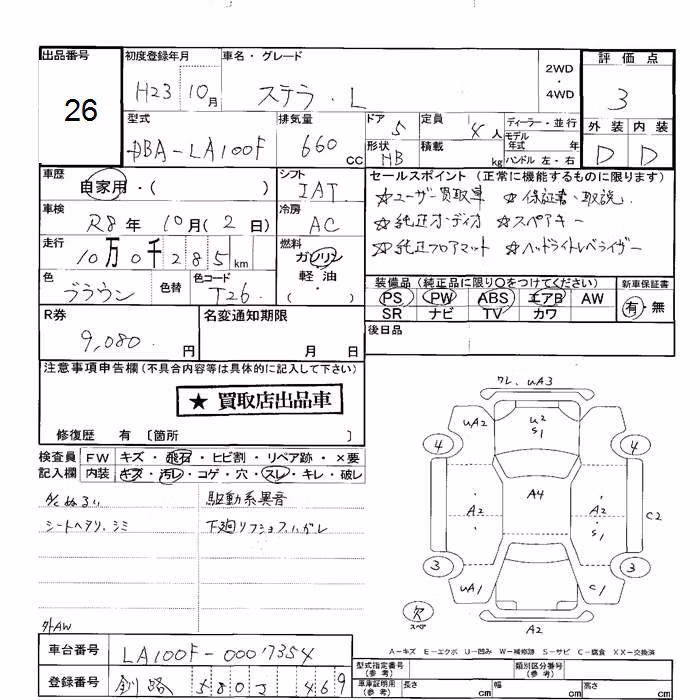 出品番号 26
初度登録年月 H23 10月
車名・グレード ステラ・L
2WD・4WD
評価点 3
型式 DBA-LA100F
排気量 660 CC
ドア 5
定員 4人
ディーラー・並行
モデル年式 年
形状 HB
積載 kg
ハンドル 左・右
外装 D
内装 D
車歴 自家用・( )
シフト IAT
車検 R8年 10月(2日)
冷房 AC
走行 10万0千285km
燃料 ガソリン 軽油 ( )
色 ブラウン
色替
色コード T26
セールスポイント (正常に機能するものに限ります)
☆ユーザー買取車 ☆保証書・取説
☆純正オーディオ ☆スペアキー
☆純正フロアマット ☆ヘッドライトレベライザー
装備品(純正品に限り〇をつけてください)
PS PW ABS エアB AW
SR ナビ TV カワ
新車保証書 有・無
R券 9,080円
名変通知期限 月 日
後日品
注意事項申告欄(不具合内容等は具体的に記入して下さい)
★ 買取店出品車
修復歴 有 〔箇所 〕
検査員記入欄
FW キズ・飛石・ヒビ割・リペア跡・×要
内装 キズ・汚レ・コゲ・穴・スレ・キレ・破レ
A/Cぬるい 駆動系異音
シートヘタリ、シミ 下廻リフショクハガレ
外AW
車台番号 LA100F-0007354
登録番号 釧路 580 469
ワレ、UA3
UA2 U2 S1
4 4
A2 A4 A2 S1 C2
3 3
UA1 C1
欠 スペア
A2
A-キズ E-エクボ U-凹み W-補修跡 S-サビ C-腐食 XX-交換済
型式指定番号(参考)
類別区分番号(参考)
車庫証明用(参考) 長さ cm 幅 cm 高さ cm